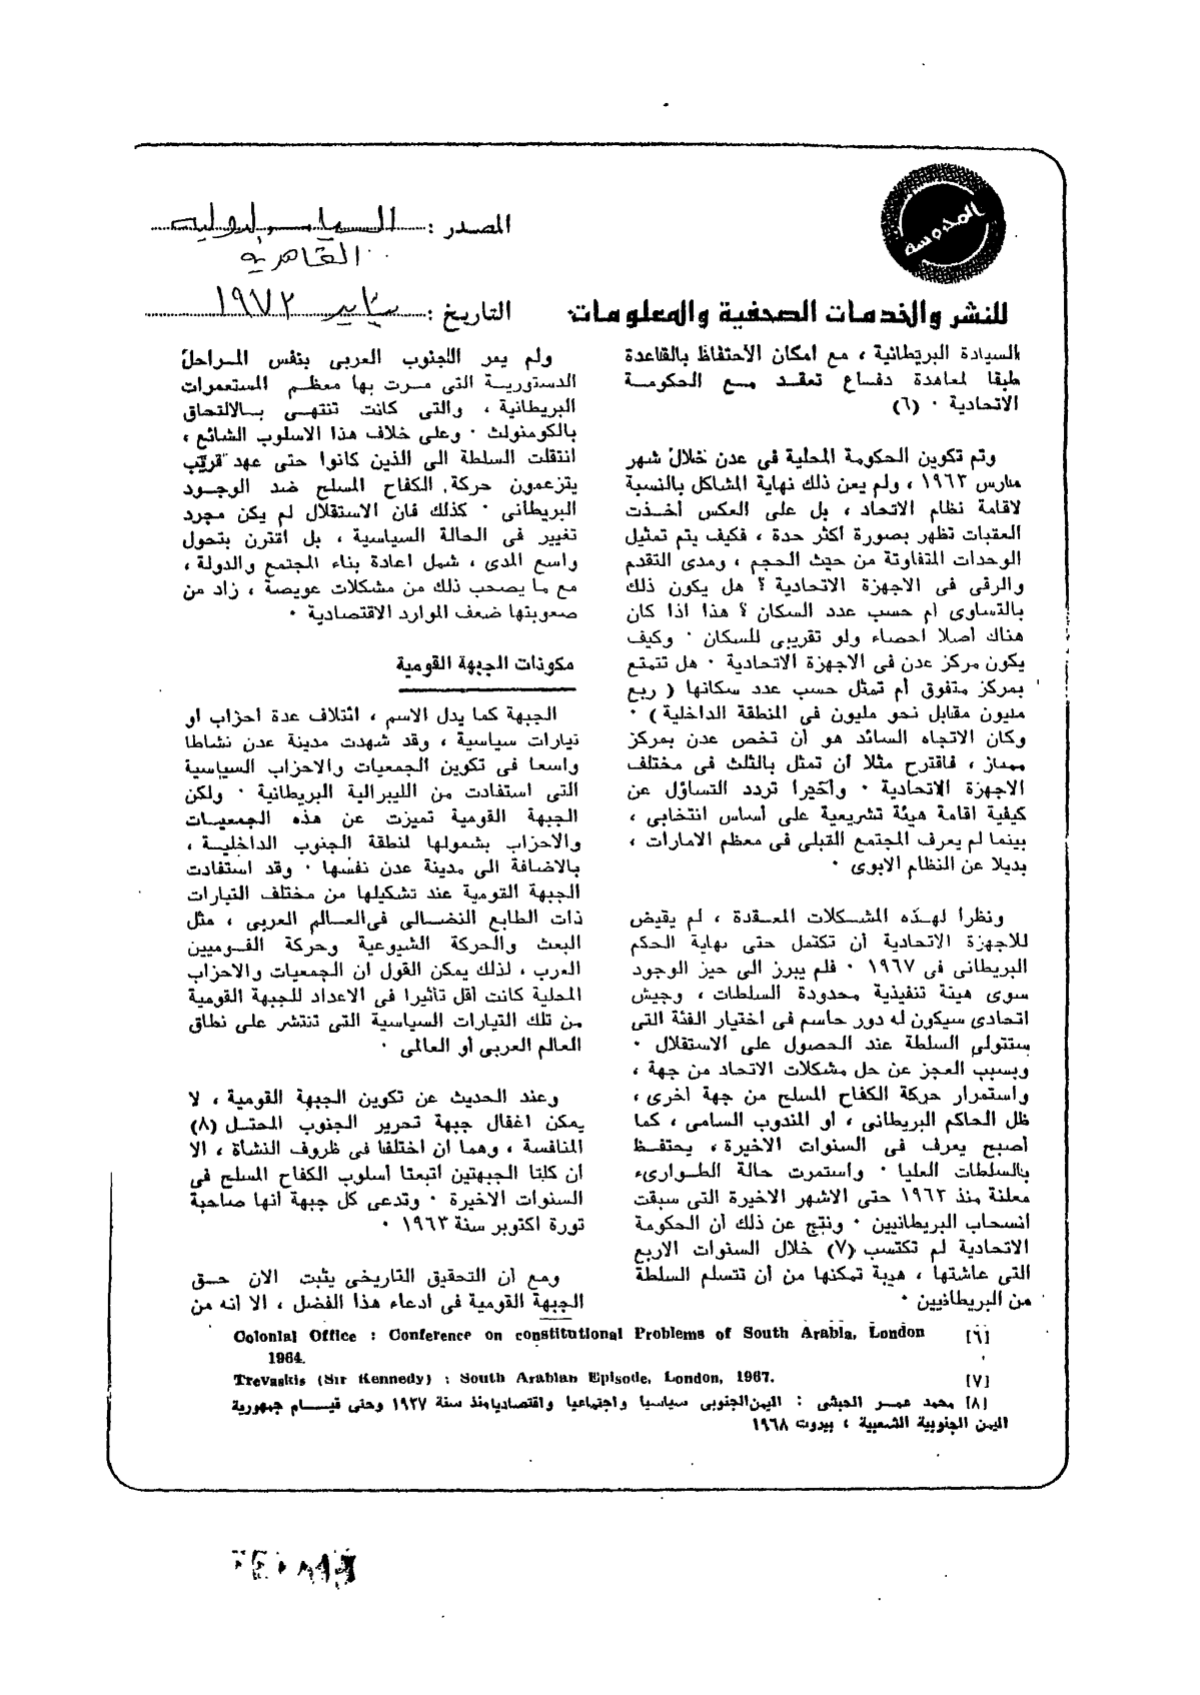 المحروسة
للنشر والخدمات الصحفية والمعلومات
المصدر : السياسة الدولية
القاهرية
التاريخ : يناير ١٩٧٢
السيادة البريطانية ، مع امكان الأحتفاظ بالقاعدة
طبقا لمعاهدة دفساع تعقد مسع الحكومة
الاتحادية ٠ (٦)
وتم تكوين الحكومة المحلية فى عدن خلال شهر
مارس ١٩٦٣ ، ولم يعن ذلك نهاية المشاكل بالنسبة
لاقامة نظام الاتحاد ، بل على العكس أخـذت
العقبات تظهر بصورة أكثر حدة ، فكيف يتم تمثيل
الوحدات المتفاوتة من حيث الحجم ، ومدى التقدم
والرقى فى الاجهزة الاتحادية ؟ هل يكون ذلك
بالتساوى ام حسب عدد السكان ؟ هذا اذا كان
هناك أصلا احصاء ولو تقريبى للسكان ٠ وكيف
يكون مركز عدن فى الاجهزة الاتحادية ٠ هل تتمتع
بمركز متفوق أم تمثل حسب عدد سكانها ( ربع
مليون مقابل نحو مليون فى المنطقة الداخلية ) ٠
وكان الاتجاه السائد هو أن تخص عدن بمركز
ممتاز ، فاقترح مثلا أن تمثل بالثلث فى مختلف
الاجهزة الاتحادية ٠ وأخيرا تردد التساؤل عن
كيفية اقامة هيئة تشريعية على أساس انتخابى ،
بينما لم يعرف المجتمع القبلى فى معظم الامارات ،
بديلا عن النظام الابوى ٠
ونظرا لهـذه المشـكلات المعـقدة ، لم يقيض
للاجهزة الاتحادية أن تكتمل حتى نهاية الحكم
البريطانى فى ١٩٦٧ ٠ فلم يبرز الى حيز الوجود
سوى هيئة تنفيذية محدودة السلطات ، وجيش
اتحادى سيكون له دور حاسم فى اختيار الفئة التى
ستتولى السلطة عند الحصول على الاستقلال ٠
وبسبب العجز عن حل مشكلات الاتحاد من جهة ،
واستمرار حركة الكفاح المسلح من جهة أخرى ،
ظل الحاكم البريطانى ، أو المندوب السامى ، كما
أصبح يعرف فى السنوات الاخيرة ، يحتفـظ
بالسلطات العليا ٠ واستمرت حالة الطـوارىء
معلنة منذ ١٩٦٣ حتى الاشهر الاخيرة التى سبقت
انسحاب البريطانيين ٠ ونتج عن ذلك أن الحكومة
الاتحادية لم تكتسب (٧) خلال السنوات الاربع
التى عاشتها ، هيبة تمكنها من أن تتسلم السلطة
من البريطانيين ٠
ولم يمر الجنوب العربى بنفس المـراحل
الدستوريـة التى مـرت بها معظـم المستعمرات
البريطانية ، والتى كانت تنتهـى بـالالتحاق
بالكومنولث ٠ وعلى خلاف هذا الاسلوب الشائع ،
انتقلت السلطة الى الذين كانوا حتى عهد قريب
يتزعمون حركة الكفاح المسلح ضد الوجـود
البريطانى ٠ كذلك فان الاستقلال لم يكن مجرد
تغيير فى الحالة السياسية ، بل اقترن بتحول
واسع المدى ، شمل اعادة بناء المجتمع والدولة ،
مع ما يصحب ذلك من مشكلات عويصة ، زاد من
صعوبتها ضعف الموارد الاقتصادية ٠
مكونات الجبهة القومية
الجبهة كما يدل الاسم ، ائتلاف عدة احزاب أو
تيارات سياسية ، وقد شهدت مدينة عدن نشاطا
واسعا فى تكوين الجمعيات والاحزاب السياسية
التى استفادت من الليبرالية البريطانية ٠ ولكن
الجبهة القومية تميزت عن هذه الجمعيـات
والاحزاب بشمولها لمنطقة الجنوب الداخليـة ،
بالاضافة الى مدينة عدن نفسها ٠ وقد استفادت
الجبهة القومية عند تشكيلها من مختلف التيارات
ذات الطابع النضـالى فى العـالم العربى ، مثل
البعث والحركة الشيوعية وحركة القـوميين
العرب ، لذلك يمكن القول ان الجمعيات والاحزاب
المحلية كانت أقل تأثيرا فى الاعداد للجبهة القومية
من تلك التيارات السياسية التى تنتشر على نطاق
العالم العربى أو العالمى ٠
وعند الحديث عن تكوين الجبهة القومية ، لا
يمكن اغفال جبهة تحرير الجنوب المحتـل (٨)
المنافسة ، وهما ان اختلفتا فى ظروف النشأة ، الا
ان كلتا الجبهتين اتبعتا أسلوب الكفاح المسلح فى
السنوات الاخيرة ٠ وتدعى كل جبهة انها صاحبة
ثورة اكتوبر سنة ١٩٦٣ ٠
ومع أن التحقيق التاريخى يثبت الان حـق
الجبهة القومية فى ادعاء هذا الفضل ، الا انه من
[٦] Colonial Office : Conference on constitutional Problems of South Arabia, London
1964.
[٧] Trevaskis (Sir Kennedy) : South Arabian Episode, London, 1967.
[٨] محمد عمـر الحبشى : اليمن الجنوبى سياسيا واجتماعيا واقتصاديا منذ سنة ١٩٣٧ وحتى قيـام جمهورية
اليمن الجنوبية الشعبية ، بيروت ١٩٦٨